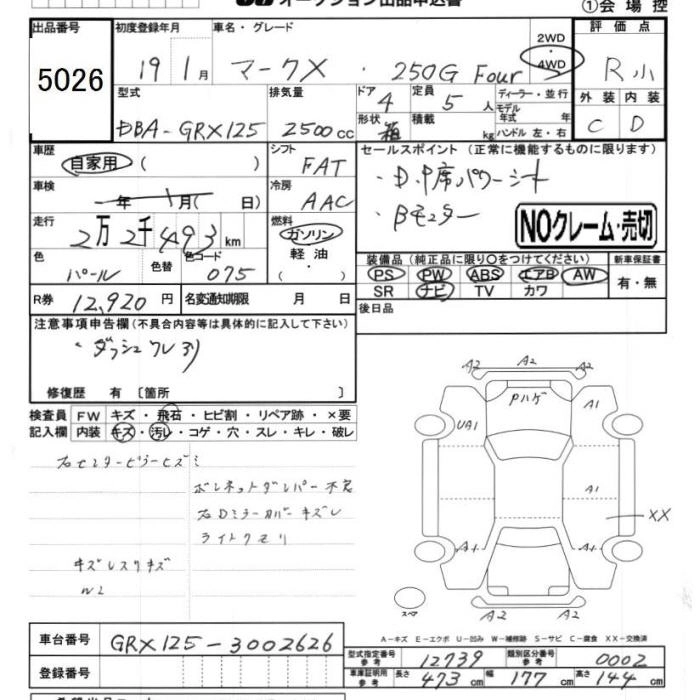 オークション出品申込書
①会場控
出品番号 初度登録年月 車名・グレード 2WD 4WD 評価点
5026 19 1月 マークX ・ 250G Four R小
型式 排気量 ドア 4 定員 5人 ディーラー・並行 外装 内装
DBA-GRX125 2500cc 形状 箱 積載 kg モデル年式 年 ハンドル 左・右 C D
車歴 自家用 ( ) シフト FAT セールスポイント (正常に機能するものに限ります)
車検 年 月( 日) 冷房 AAC ・D.P席パワーシート
走行 2万2千493km 燃料 ガソリン 軽油 ・Bモニター
NOクレーム・売切
色 パール 色替 色コード 075 装備品(純正品に限り○をつけてください) 新車保証書
PS PW ABS エアB AW 有・無
SR ナビ TV カワ
R券 12,920円 名変通知期限 月 日 後日品
注意事項申告欄(不具合内容等は具体的に記入して下さい)
・ダッシュワレ有り
修復歴 有 〔箇所 〕
検査員 FW キズ・飛石・ヒビ割・リペア跡・×要
記入欄 内装 キズ・汚レ・コゲ・穴・スレ・キレ・破レ
右センターピラーヒズミ
ボンネットダンパー不良
右Dミラーカバーキズレ
ライトクモリ
キズレスリキズ
W2
A2 A2 A2
Pハゲ A1
UA1
A1
XX
A1 A1
スペア A2 A2
A-キズ E-エクボ U-凹み W-補修跡 S-サビ C-腐食 XX-交換済
車台番号 GRX125-3002626
型式指定番号 参考 12739 類別区分番号 参考 0002
登録番号 車庫証明用 参考 長さ 473cm 幅 177cm 高さ 144cm